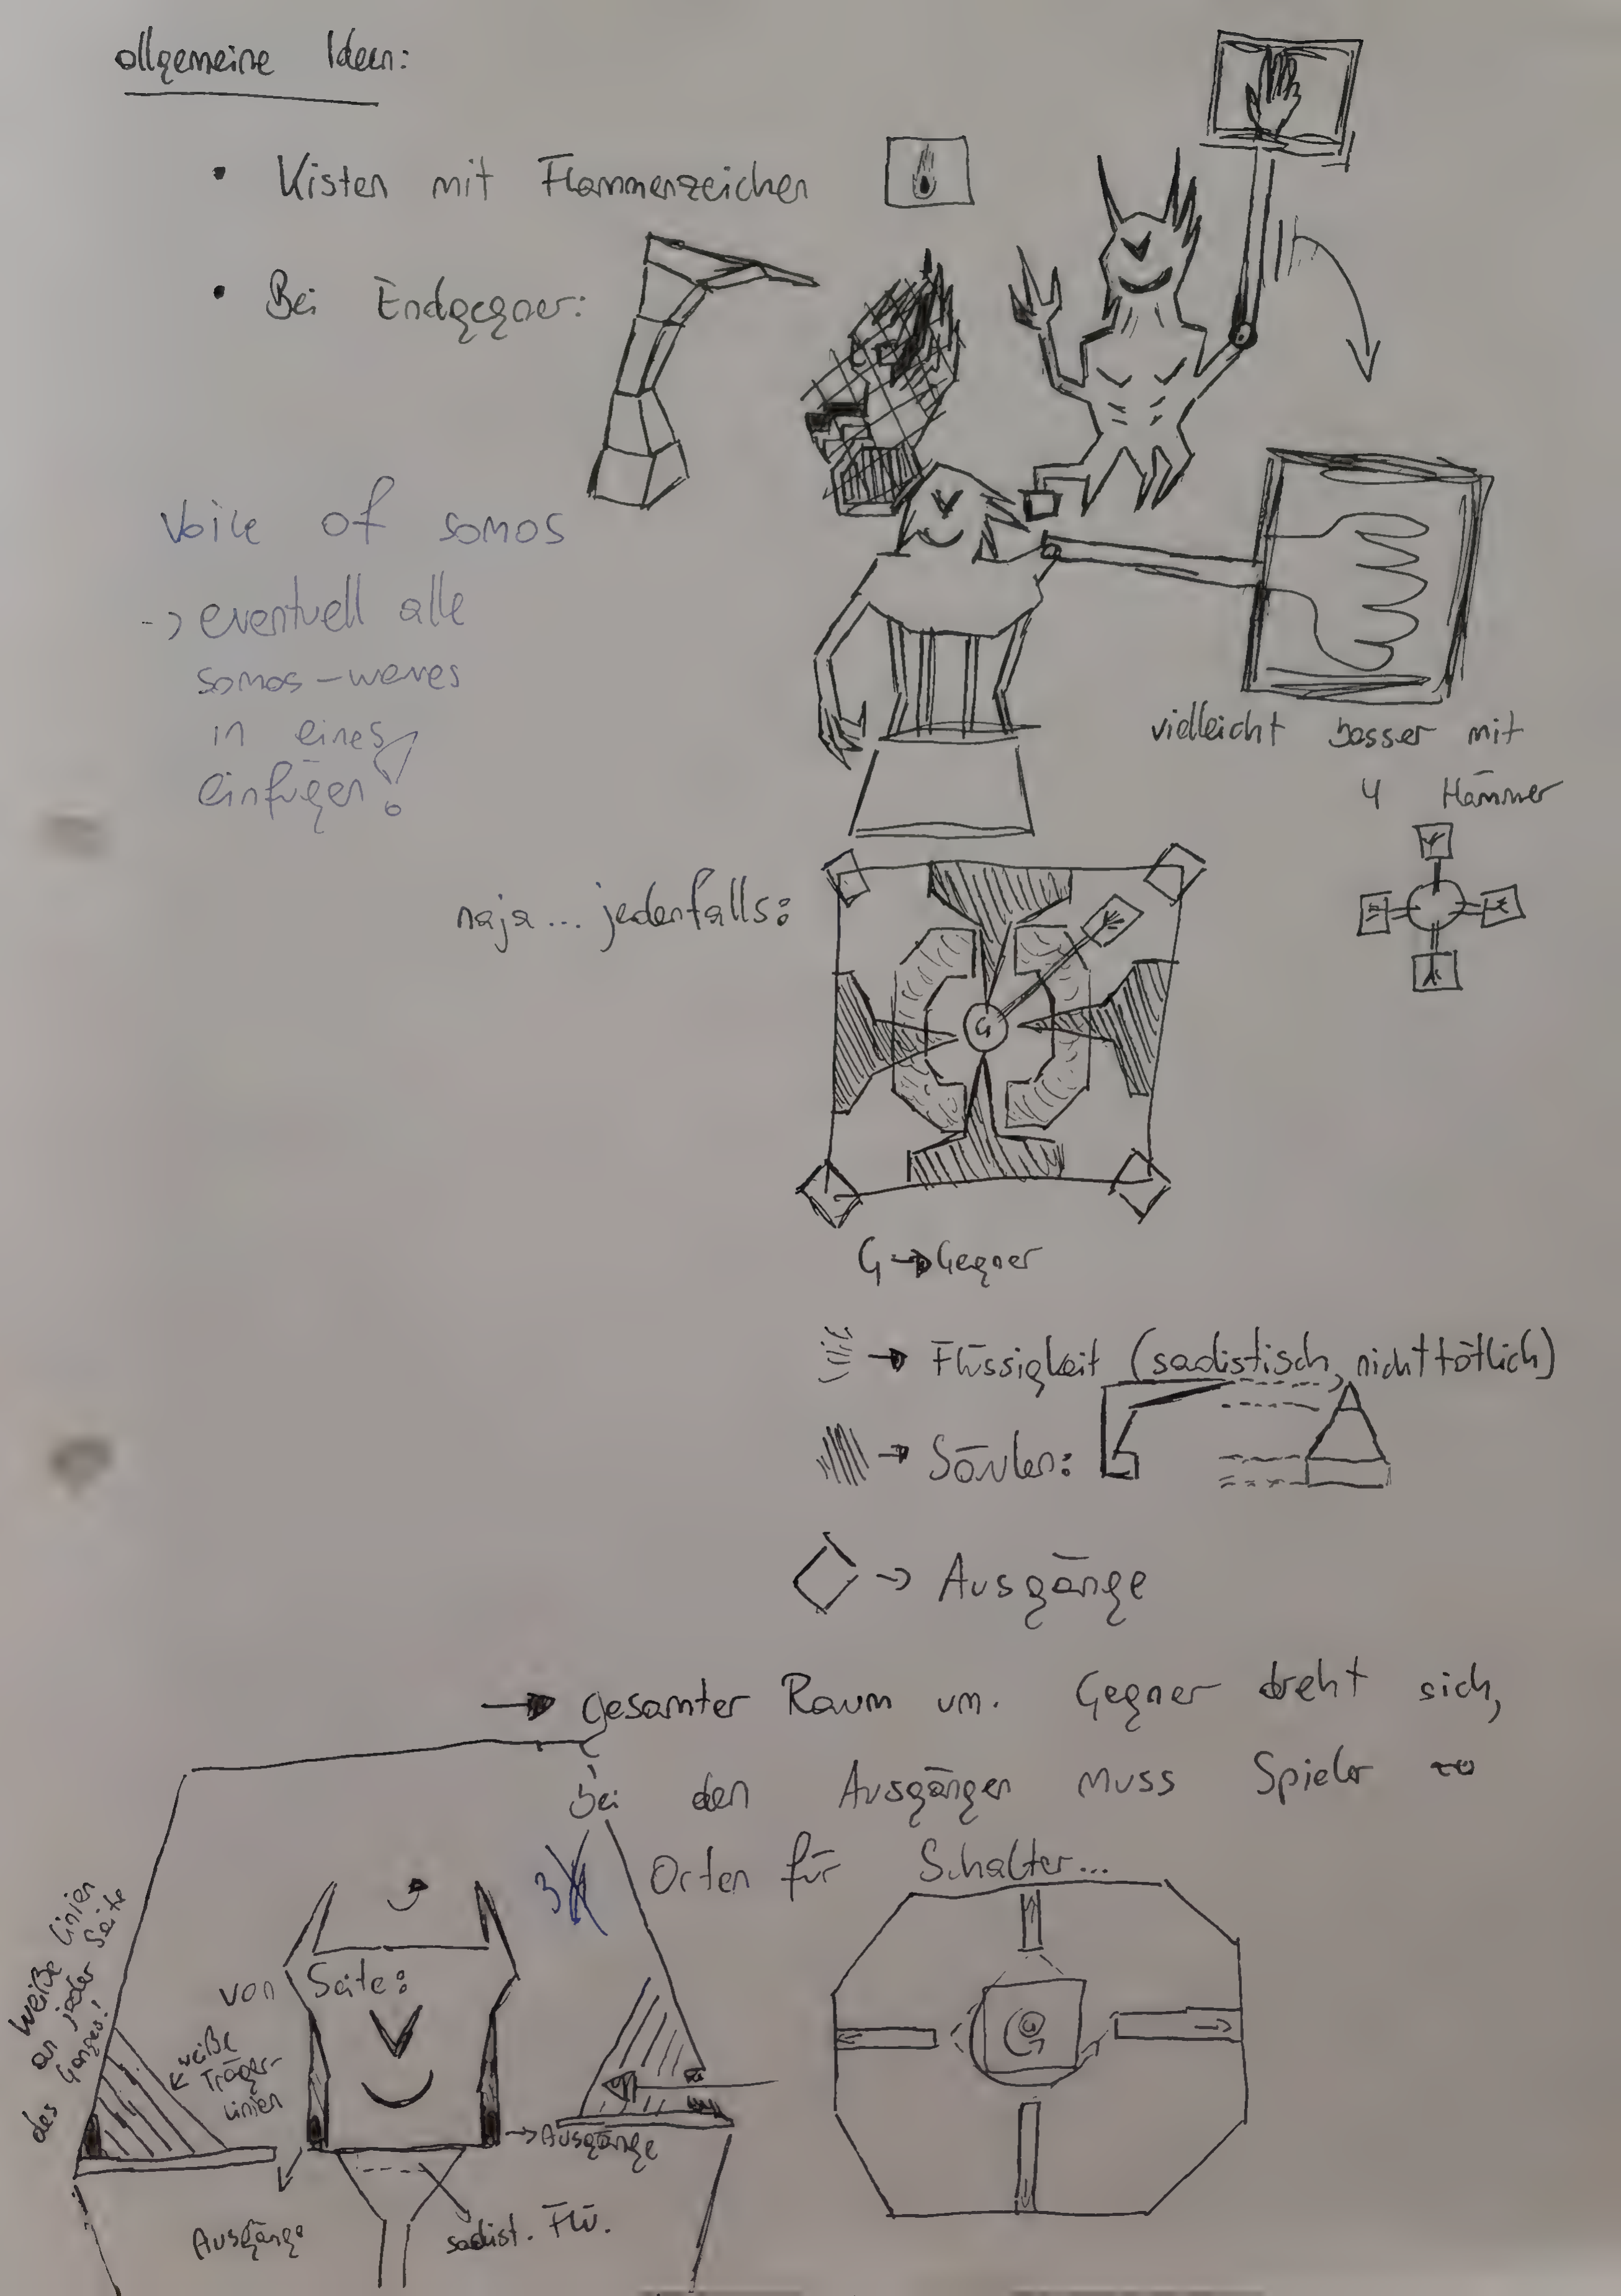 allgemeine Ideen:
• Kisten mit Flammenzeichen
• Bei Endgegner:
Voice of somos
-> eventuell alle
somos-waves
in eines
einfügen!
vielleicht besser mit
4 Hämmer
naja... jedenfalls:
G
G → Gegner
→ Flüssigkeit (sadistisch, nicht tötlich)
→ Säulen:
→ Ausgänge
→ gesamter Raum um. Gegner dreht sich,
bei den Ausgängen muss Spieler zu
3 Orten für Schalter...
von Seite:
weiße Linien
an jeder Seite
des Ganges!
weiße
Träger-
linien
→ Ausgänge
Ausgänge
sadist. Flü.
G